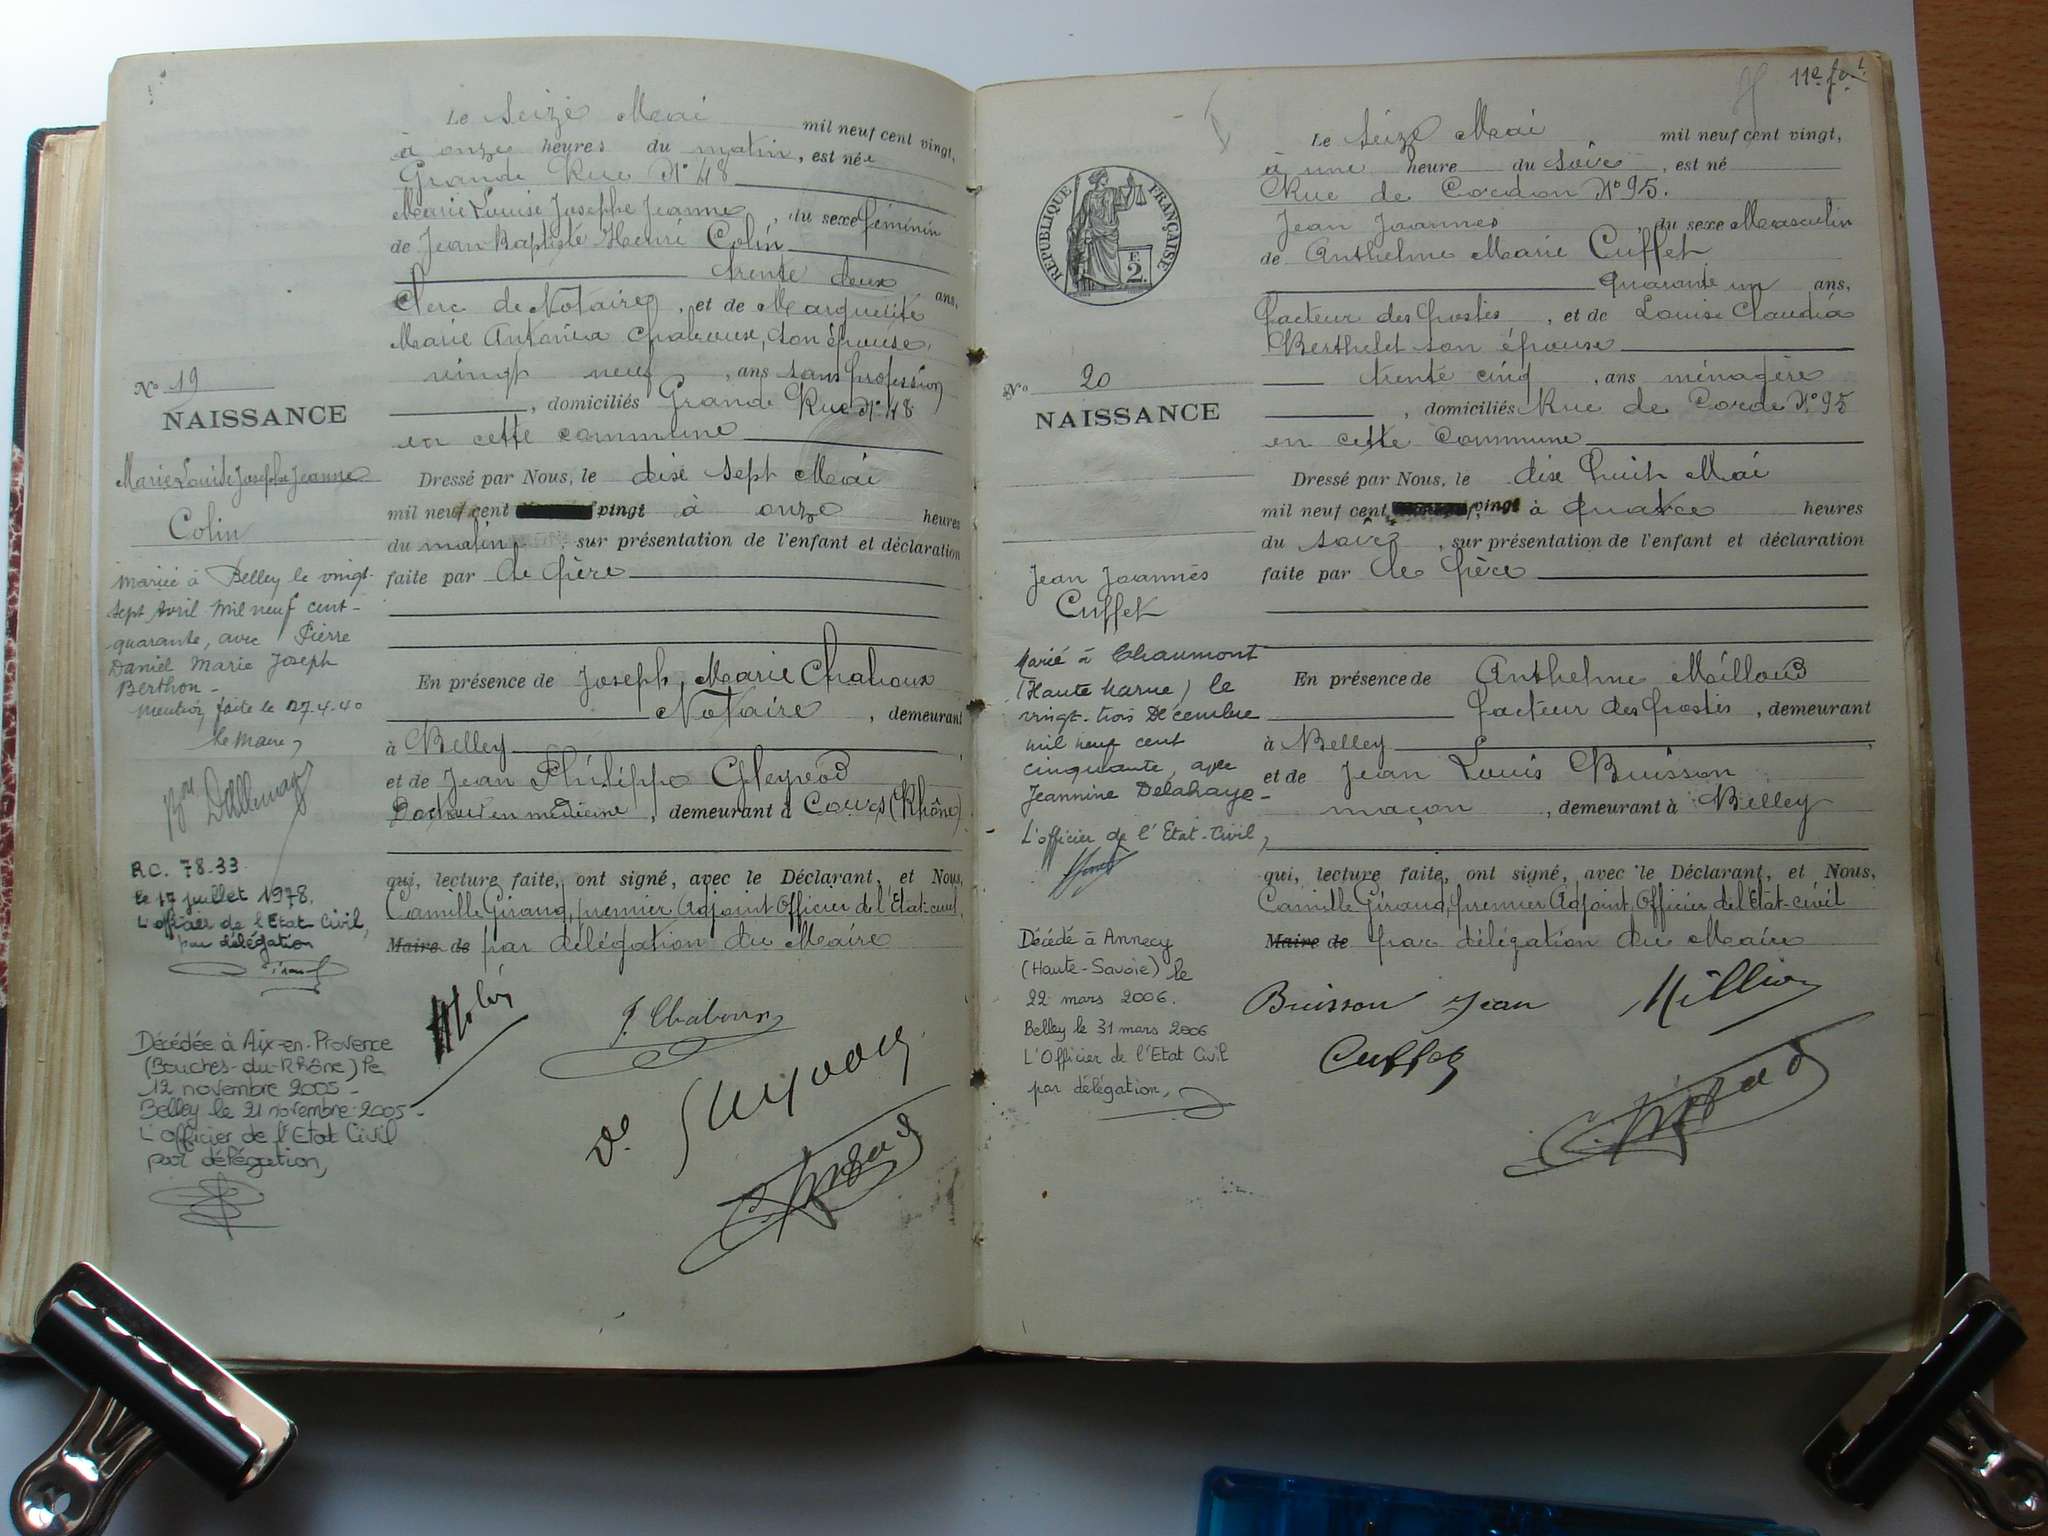 Le Seize Mai mil neuf cent vingt,
à onze heures du matin, est née
Grande Rue N° 48
Marie Louise Josephe Jeanne, du sexe féminin
de Jean Baptiste Henri Colin
trente deux ans,
Clerc de Notaire, et de Marguerite
Marie Antonia Chaboux, son épouse,
vingt neuf, ans sans profession
, domiciliés Grande Rue N° 48
en cette commune
N° 19
NAISSANCE
Marie Louise Josephe Jeanne
Colin
Dressé par Nous, le dix sept Mai
mil neuf cent vingt à onze heures
du matin, sur présentation de l'enfant et déclaration
faite par le père
Mariée à Belley le vingt-
sept Avril mil neuf cent-
quarante, avec Pierre
Daniel Marie Joseph
Berthon -
Mention faite le 27.4.40
Le Maire,
En présence de Joseph Marie Chaboux
Notaire, demeurant
à Belley
et de Jean Philippe Gleyvod
Docteur en médecine, demeurant à Cours (Rhône)
qui, lecture faite, ont signé, avec le Déclarant, et Nous,
Camille Giraud, premier Adjoint Officier de l'Etat-civil,
Maire de par délégation du Maire
R.C. 78.33
le 17 juillet 1978.
L'officier de l'Etat Civil,
par délégation
J. Chaboux
Décédée à Aix-en-Provence
(Bouches-du-Rhône) le
12 novembre 2005 -
Belley le 21 novembre 2005 -
L'officier de l'Etat Civil
par délégation,
11e f.
Le Seize Mai mil neuf cent vingt,
à une heure du soir, est né
Rue de Cordon N° 95.
Jean Joannes, du sexe Masculin
de Anthelme Marie Cuffet
quarante un ans,
facteur des Postes, et de Louise Claudia
Berthelet son épouse
trente cinq, ans ménagère
, domiciliés Rue de Cordon N° 95
en cette commune
RÉPUBLIQUE FRANÇAISE
F.
2.
N° 20
NAISSANCE
Jean Joannès
Cuffet
Dressé par Nous, le dix huit Mai
mil neuf cent vingt à quatre heures
du soir, sur présentation de l'enfant et déclaration
faite par le père
Marié à Chaumont
(Haute Marne) le
vingt-trois Décembre
mil neuf cent
cinquante avec
Jeannine Delahaye -
L'officier de l'Etat-Civil,
En présence de Anthelme Milloud
facteur des Postes, demeurant
à Belley
et de Jean Louis Buisson
maçon, demeurant à Belley
qui, lecture faite, ont signé, avec le Déclarant, et Nous,
Camille Giraud, premier Adjoint, Officier de l'Etat-civil
Maire de par délégation du Maire
Décédé à Annecy
(Haute-Savoie) le
22 mars 2006.
Belley le 31 mars 2006
L'Officier de l'Etat Civil
par délégation,
Buisson Jean
Cuffet